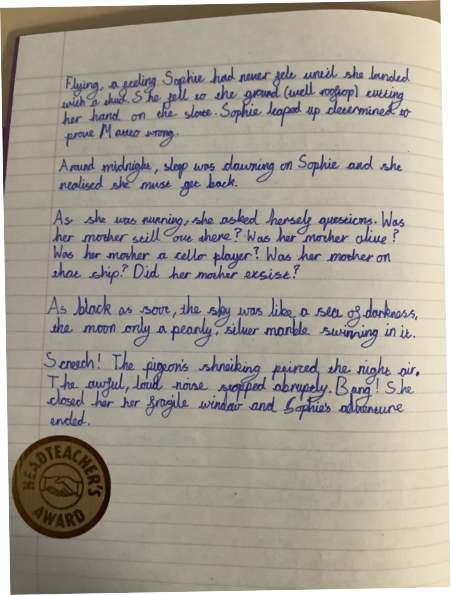 Flying, a feeling Sophie had never felt until she landed
with a thud. She fell to the ground (well rooftop) cutting
her hand on the slate. Sophie leaped up determined to
prove Matteo wrong.
Around midnight, sleep was dawning on Sophie and she
realised she must get back.
As she was running, she asked herself questions. Was
her mother still out there? Was her mother alive?
Was her mother a cello player? Was her mother on
that ship? Did her mother exsist?
As black as soot, the sky was like a sea of darkness,
the moon only a pearly, silver marble swimming in it.
Screech! The pigeon's shreiking peirced the night air.
The awful, loud noise stopped abruptly. Bang! She
closed her her fragile window and Sophie's adventure
ended.
HEADTEACHER'S
AWARD